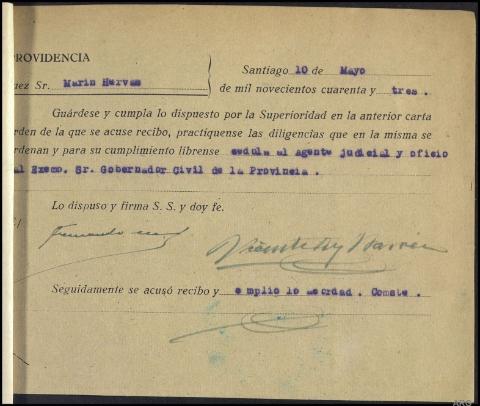 PROVIDENCIA
Santiago 10 de Mayo
uez Sr. Marin Hervas
de mil novecientos cuarenta y tres.
Guárdese y cumpla lo dispuesto por la Superioridad en la anterior carta
orden de la que se acuse recibo, practíquense las diligencias que en la misma se
ordenan y para su cumplimiento librense cedula al Agente judicial y oficio
al Excmo. Sr. Gobernador Civil de la Provincia.
Lo dispuso y firma S. S. y doy fe.
Seguidamente se acusó recibo y